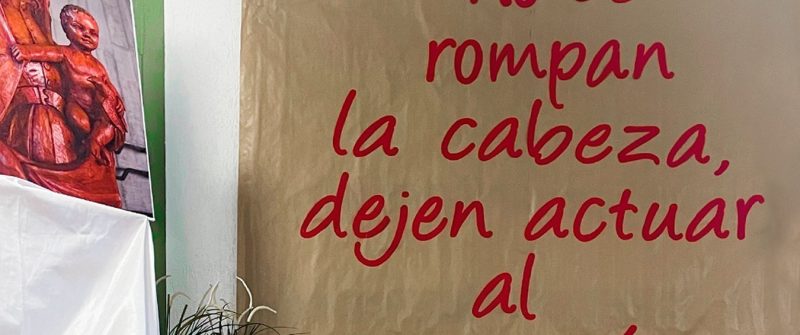 rompan
la cabeza,
dejen actuar
al